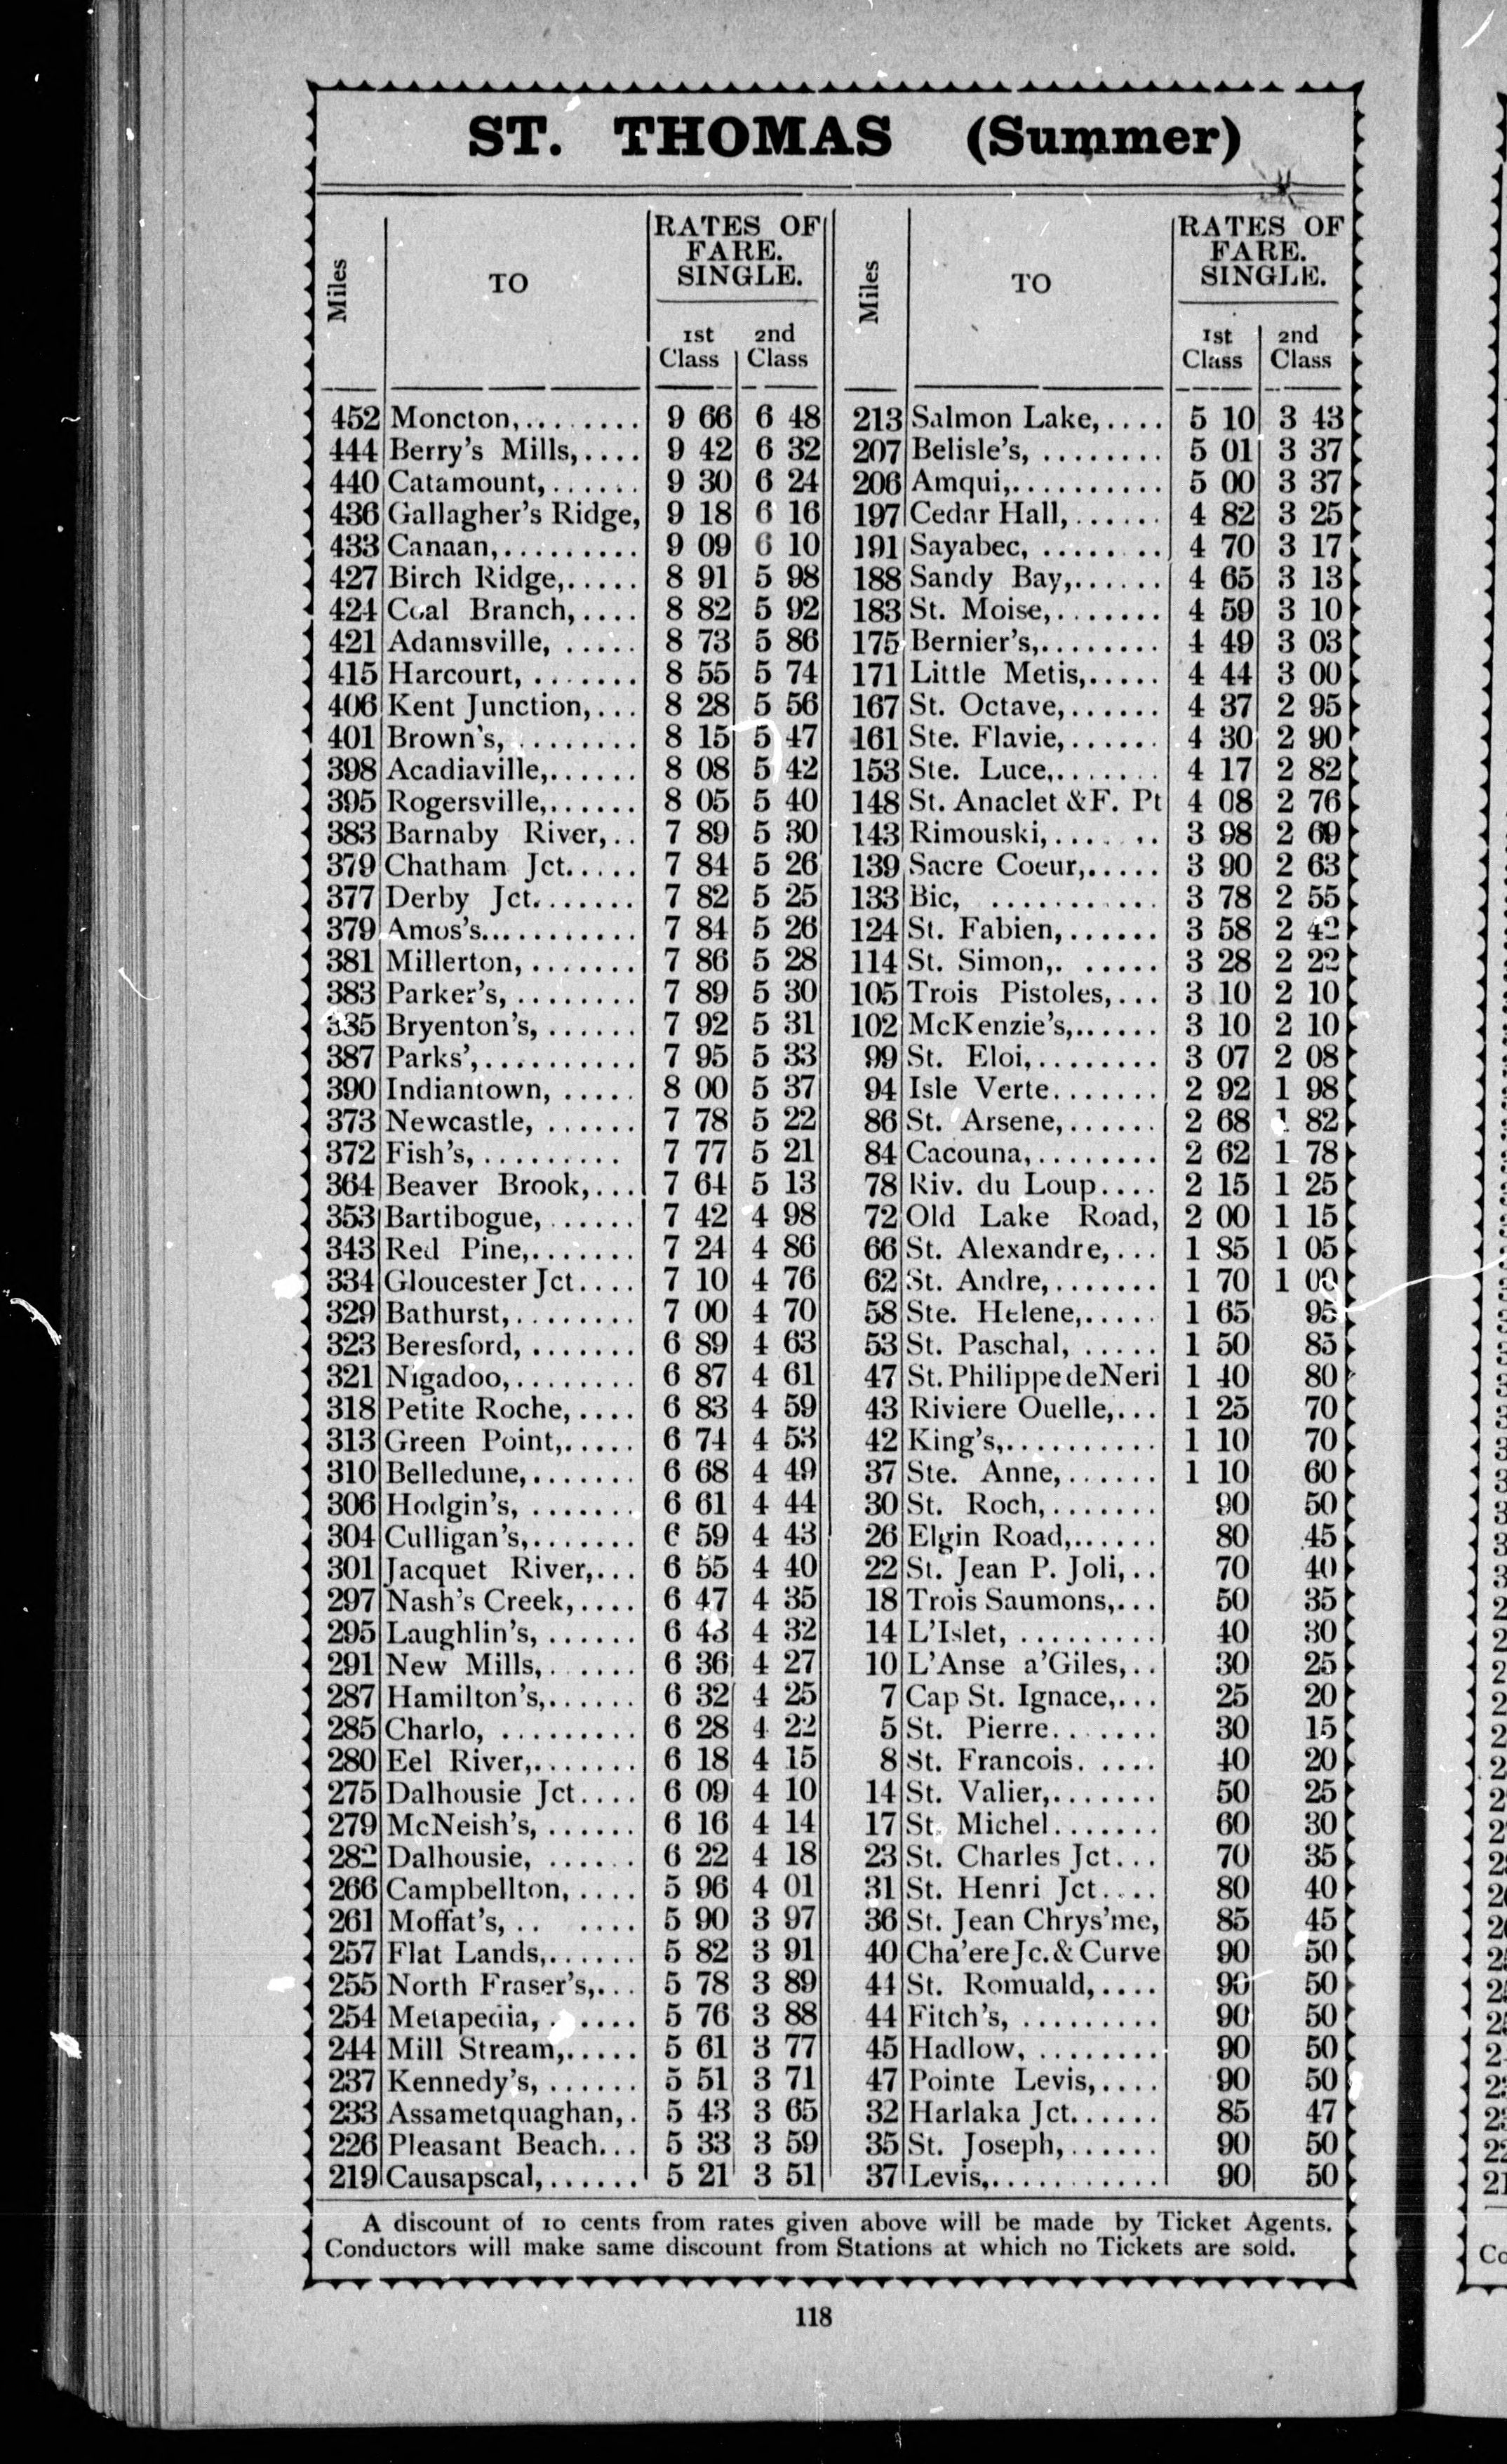 ST. THOMAS (Summer)
Miles TO RATES OF FARE. SINGLE. 1st Class 2nd Class
452 Moncton,........ 9 66 6 48
444 Berry's Mills,.... 9 42 6 32
440 Catamount,...... 9 30 6 24
436 Gallagher's Ridge, 9 18 6 16
433 Canaan,......... 9 09 6 10
427 Birch Ridge,..... 8 91 5 98
424 Coal Branch,.... 8 82 5 92
421 Adamsville, ..... 8 73 5 86
415 Harcourt, ....... 8 55 5 74
406 Kent Junction,... 8 28 5 56
401 Brown's, ........ 8 15 5 47
398 Acadiaville,...... 8 08 5 42
395 Rogersville,...... 8 05 5 40
383 Barnaby River,.. 7 89 5 30
379 Chatham Jct..... 7 84 5 26
377 Derby Jct....... 7 82 5 25
379 Amos's........... 7 84 5 26
381 Millerton, ....... 7 86 5 28
383 Parker's, ........ 7 89 5 30
385 Bryenton's, ...... 7 92 5 31
387 Parks',.......... 7 95 5 33
390 Indiantown, ..... 8 00 5 37
373 Newcastle, ...... 7 78 5 22
372 Fish's, .......... 7 77 5 21
364 Beaver Brook,... 7 64 5 13
353 Bartibogue, ...... 7 42 4 98
343 Red Pine,....... 7 24 4 86
334 Gloucester Jct.... 7 10 4 76
329 Bathurst,........ 7 00 4 70
323 Beresford, ....... 6 89 4 63
321 Nigadoo,........ 6 87 4 61
318 Petite Roche,.... 6 83 4 59
313 Green Point,..... 6 74 4 53
310 Belledune,....... 6 68 4 49
306 Hodgin's, ....... 6 61 4 44
304 Culligan's,....... 6 59 4 43
301 Jacquet River,... 6 55 4 40
297 Nash's Creek,.... 6 47 4 35
295 Laughlin's, ...... 6 43 4 32
291 New Mills,...... 6 36 4 27
287 Hamilton's,...... 6 32 4 25
285 Charlo, ......... 6 28 4 22
280 Eel River,....... 6 18 4 15
275 Dalhousie Jct.... 6 09 4 10
279 McNeish's, ...... 6 16 4 14
282 Dalhousie, ...... 6 22 4 18
266 Campbellton, .... 5 96 4 01
261 Moffat's, .. .... 5 90 3 97
257 Flat Lands,...... 5 82 3 91
255 North Fraser's,... 5 78 3 89
254 Metapedia, ...... 5 76 3 88
244 Mill Stream,..... 5 61 3 77
237 Kennedy's, ...... 5 51 3 71
233 Assametquaghan, . 5 43 3 65
226 Pleasant Beach... 5 33 3 59
219 Causapscal,...... 5 21 3 51
Miles TO RATES OF FARE. SINGLE. 1st Class 2nd Class
213 Salmon Lake,.... 5 10 3 43
207 Belisle's, ........ 5 01 3 37
206 Amqui,.......... 5 00 3 37
197 Cedar Hall, ...... 4 82 3 25
191 Sayabec, ........ 4 70 3 17
188 Sandy Bay,...... 4 65 3 13
183 St. Moise,....... 4 59 3 10
175 Bernier's,........ 4 49 3 03
171 Little Metis,..... 4 44 3 00
167 St. Octave,...... 4 37 2 95
161 Ste. Flavie,...... 4 30 2 90
153 Ste. Luce,....... 4 17 2 82
148 St. Anaclet &F. Pt 4 08 2 76
143 Rimouski,..... .. 3 98 2 69
139 Sacre Coeur,..... 3 90 2 63
133 Bic, ........... 3 78 2 55
124 St. Fabien,...... 3 58 2 42
114 St. Simon,. ..... 3 28 2 22
105 Trois Pistoles,... 3 10 2 10
102 McKenzie's,...... 3 10 2 10
99 St. Eloi,........ 3 07 2 08
94 Isle Verte....... 2 92 1 98
86 St. Arsene,...... 2 68 1 82
84 Cacouna,........ 2 62 1 78
78 Riv. du Loup.... 2 15 1 25
72 Old Lake Road, 2 00 1 15
66 St. Alexandre,... 1 85 1 05
62 St. Andre,....... 1 70 1 00
58 Ste. Helene,..... 1 65 95
53 St. Paschal, ..... 1 50 85
47 St. Philippe de Neri 1 40 80
43 Riviere Ouelle,... 1 25 70
42 King's,.......... 1 10 70
37 Ste. Anne,...... 1 10 60
30 St. Roch,....... 90 50
26 Elgin Road,...... 80 45
22 St. Jean P. Joli,.. 70 40
18 Trois Saumons,... 50 35
14 L'Islet, ......... 40 30
10 L'Anse a'Giles,.. 30 25
7 Cap St. Ignace,... 25 20
5 St. Pierre....... 30 15
8 St. Francois. .... 40 20
14 St. Valier,....... 50 25
17 St. Michel....... 60 30
23 St. Charles Jct... 70 35
31 St. Henri Jct.... 80 40
36 St. Jean Chrys'me, 85 45
40 Cha'ere Jc. & Curve 90 50
44 St. Romuald,.... 90 50
44 Fitch's, ......... 90 50
45 Hadlow, ........ 90 50
47 Pointe Levis,.... 90 50
32 Harlaka Jct...... 85 47
35 St. Joseph,...... 90 50
37 Levis,........... 90 50
A discount of 10 cents from rates given above will be made by Ticket Agents.
Conductors will make same discount from Stations at which no Tickets are sold.
118